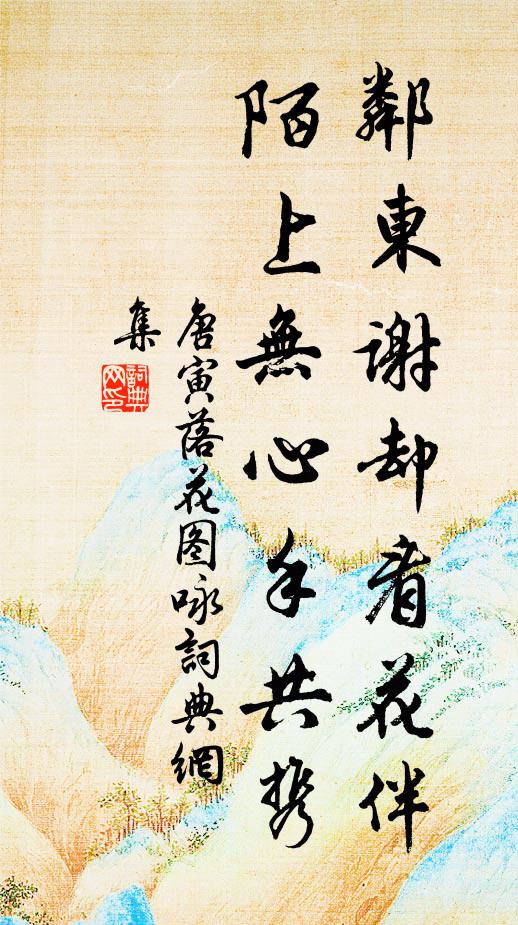 鄰東謝却看花伴
陌上無心手共携
唐寅落花图咏詞典網
集
詞典網印